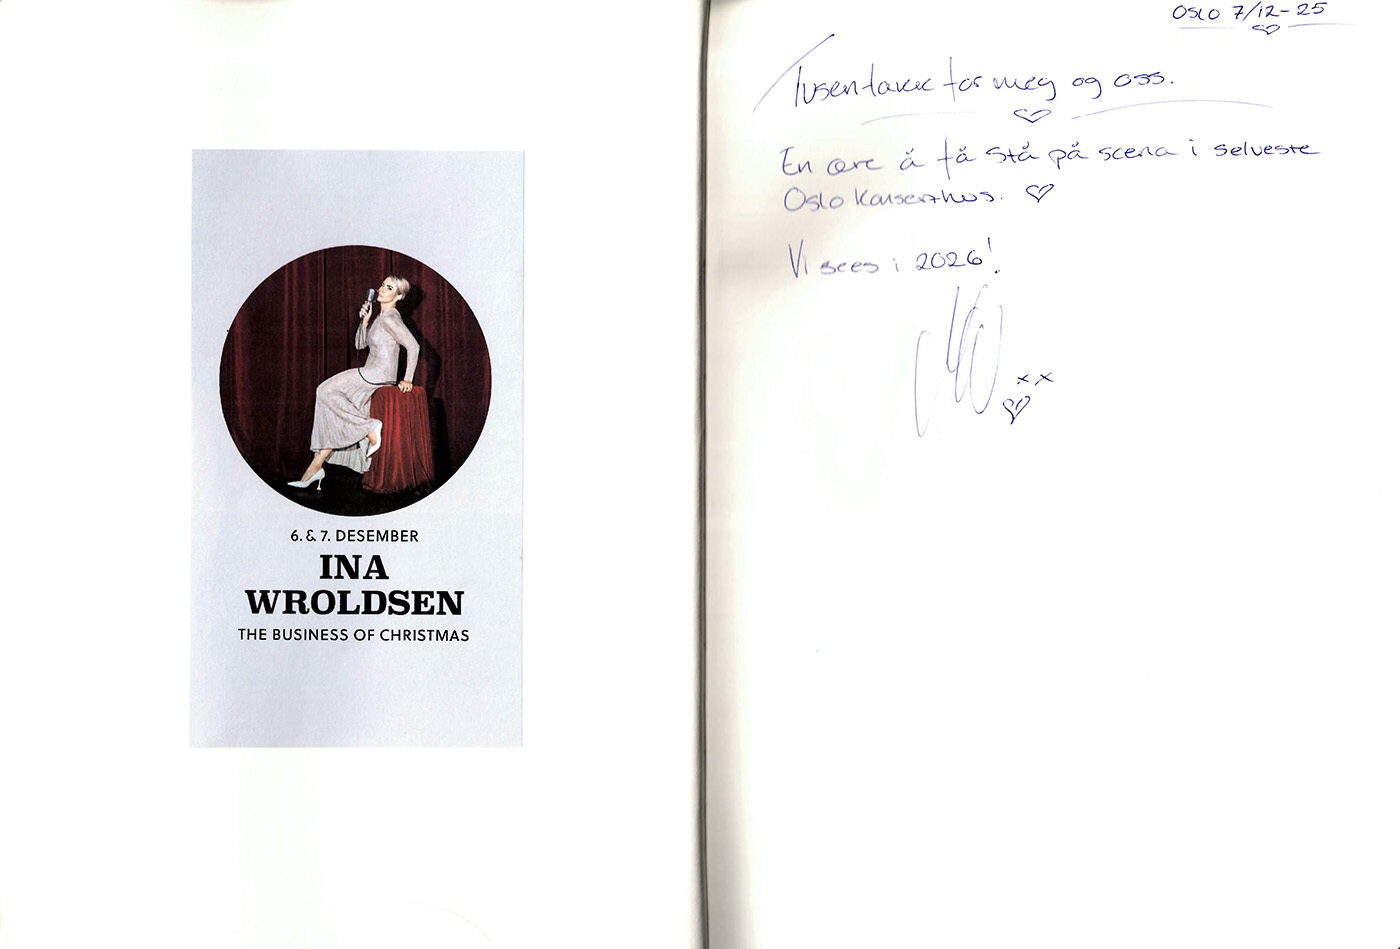 6. & 7. DESEMBER
INA
WROLDSEN
THE BUSINESS OF CHRISTMAS
OSLO 7/12-25
Tusen takk for meg og oss.
En ære å få stå på scena i selveste
Oslo Konserthus.
Vi sees i 2026!
xx